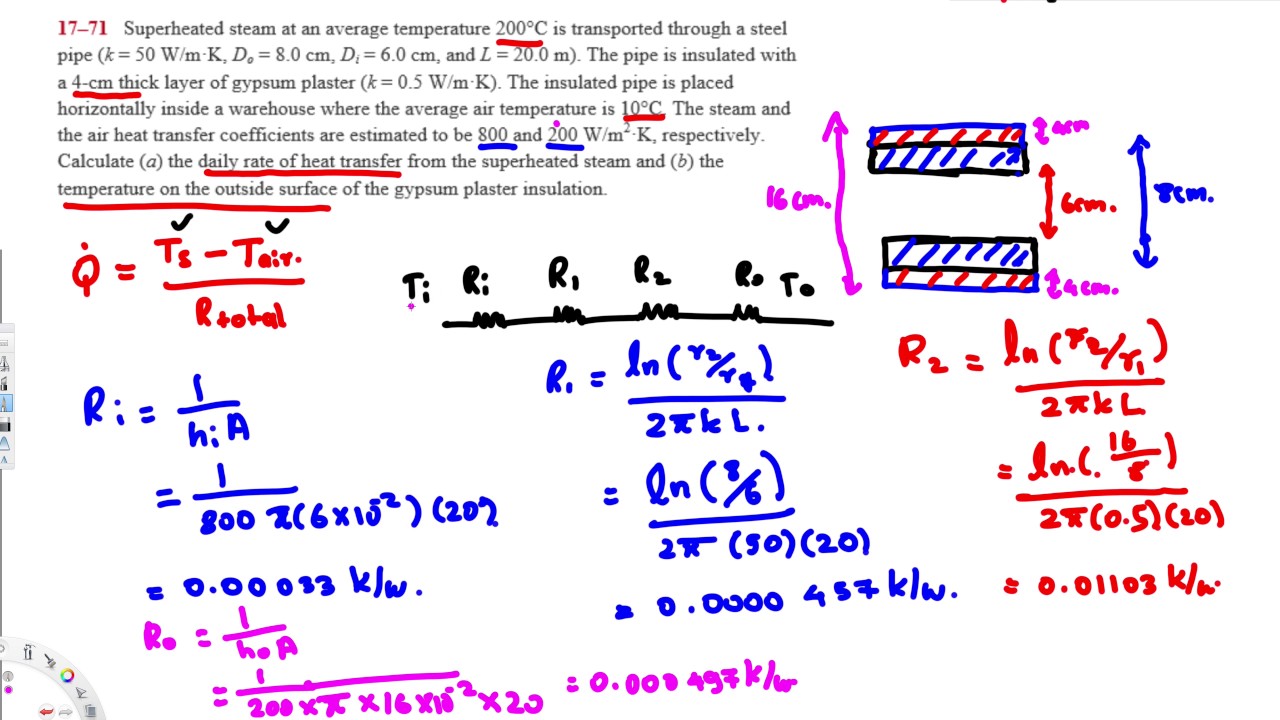 17–71 Superheated steam at an average temperature 200°C is transported through a steel
pipe (k = 50 W/m·K, Do = 8.0 cm, Di = 6.0 cm, and L = 20.0 m). The pipe is insulated with
a 4-cm thick layer of gypsum plaster (k = 0.5 W/m·K). The insulated pipe is placed
horizontally inside a warehouse where the average air temperature is 10°C. The steam and
the air heat transfer coefficients are estimated to be 800 and 200 W/m²·K, respectively.
Calculate (a) the daily rate of heat transfer from the superheated steam and (b) the
temperature on the outside surface of the gypsum plaster insulation.
4cm
16cm.
6cm.
8cm.
4cm.
Q̇ = Ts – Tair. / Rtotal
Ti Ri R1 R2 Ro To
Ri = 1 / hiA
= 1 / 800 π(6×10⁻²)(20)
= 0.00033 K/W.
R1 = ln(r2/r1) / 2πkL.
= ln(8/6) / 2π(50)(20)
= 0.0000457 K/W.
R2 = ln(r2/r1) / 2πkL
= ln.(.16/8) / 2π(0.5)(20)
= 0.01103 K/W.
Ro = 1 / hoA
= 1 / 200×π×16×10⁻²×20 = 0.000497 K/W